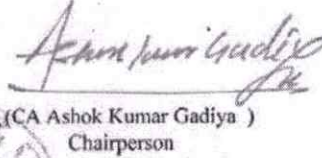 Ashok Kumar Gadiya
(CA Ashok Kumar Gadiya )
Chairperson